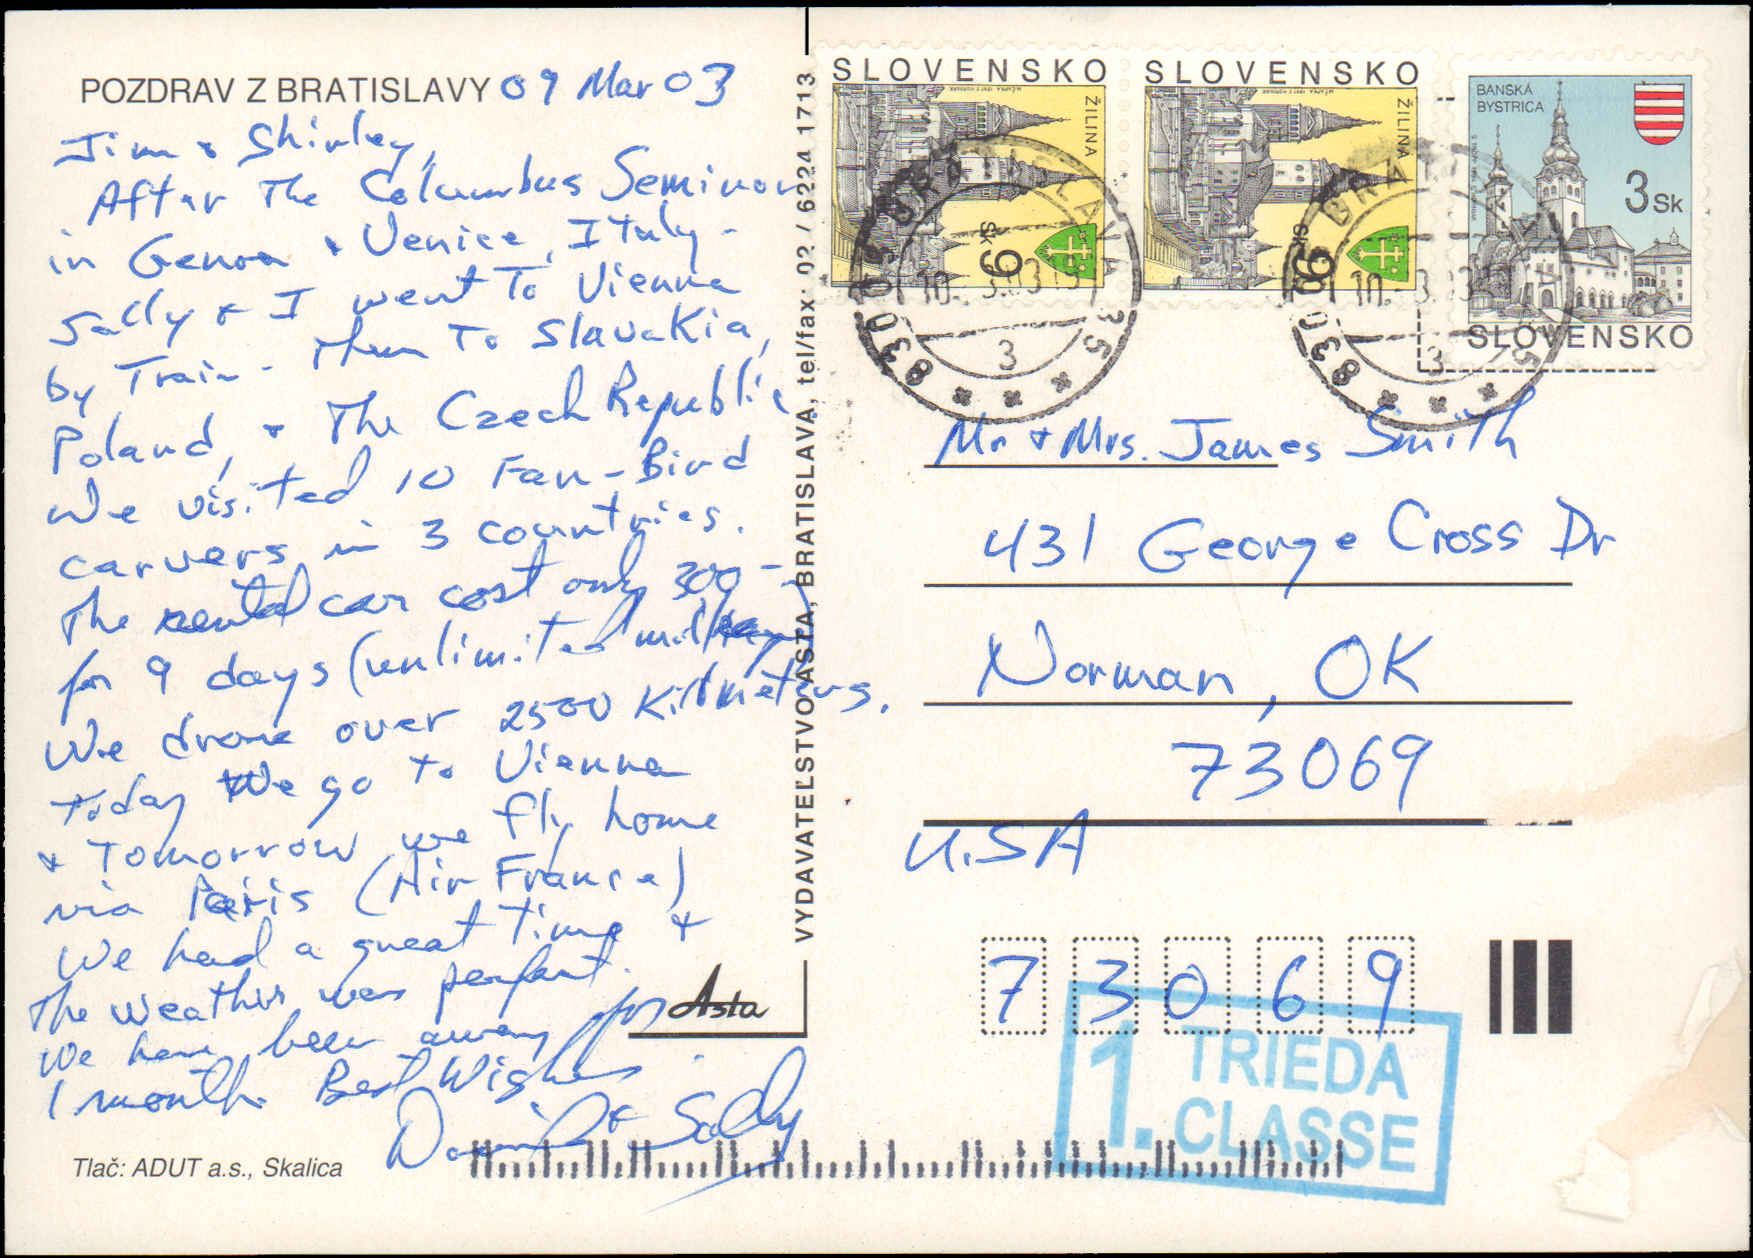 POZDRAV Z BRATISLAVY 09 Mar 03
Jim & Shirley,
After The Columbus Seminar
in Genoa & Venice, Italy -
Sally & I went To Vienna
by Train - Then To Slavakia,
Poland, & The Czech Republic
We visited 10 Fan-Bird
carvers in 3 countries.
The rental car cost only 300 -
for 9 days (unlimited
We drove over 2500 Kilometers.
Today We go to Vienna
& Tomorrow we fly home
via Paris (Air France)
We had a great Time &
The weather was perfect.
We have been away for
1 month. Best Wishes
& Sally
Tlač: ADUT a.s., Skalica
VYDAVATEĽSTVO ASTA, BRATISLAVA, tel/fax: 02 / 6224 1713
Asta
SLOVENSKO
ŽILINA
9 Sk
SLOVENSKO
ŽILINA
9 Sk
BANSKÁ
BYSTRICA
3 Sk
SLOVENSKO
BRATISLAVA 35
830 0
10. 3.03 19
3
Mr & Mrs. James Smith
431 George Cross Dr
Norman, OK
73069
U.SA
7 3 0 6 9
1. TRIEDA
CLASSE